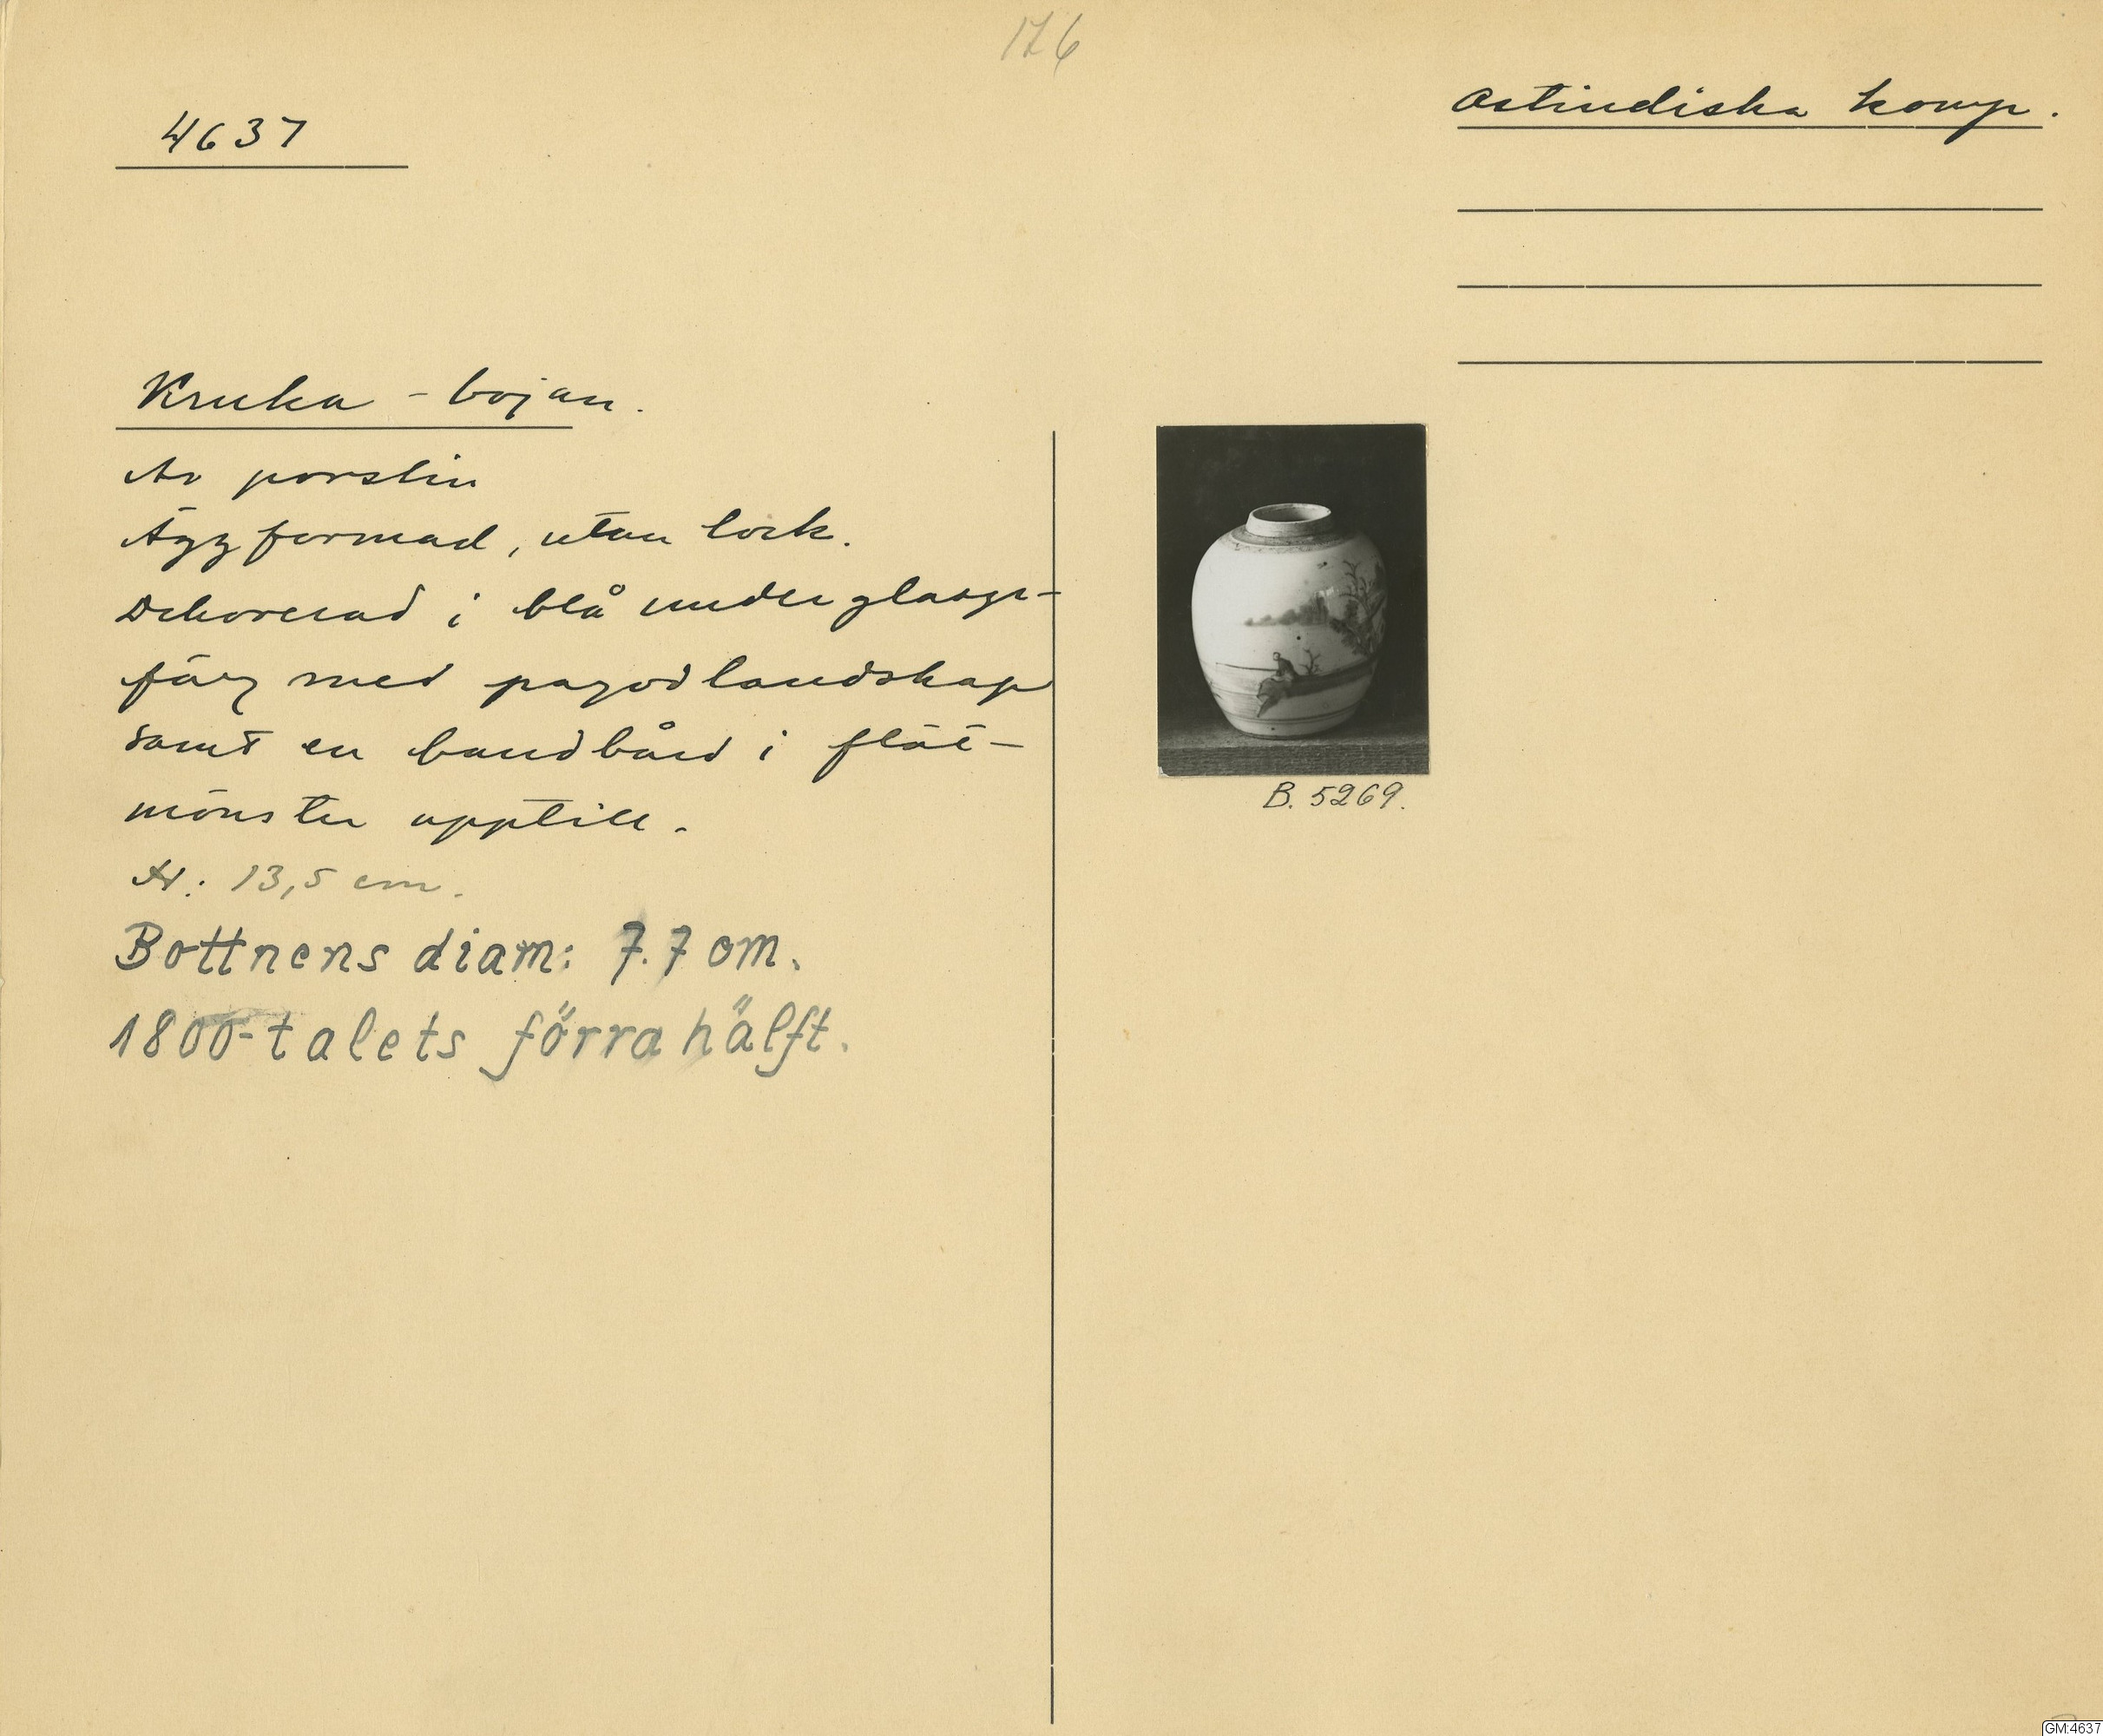 176
4637
Ostindiska komp.
Kruka - bojan.
Av porslin
Äggformad, utan lock.
Dekorerad i blå underglasyr-
färg med pagodlandskap
samt en bandbård i flät-
mönster upptill.
H: 13,5 cm.
Bottnens diam: 7.7 cm.
1800-talets förra hälft.
B. 5269.
GM:4637